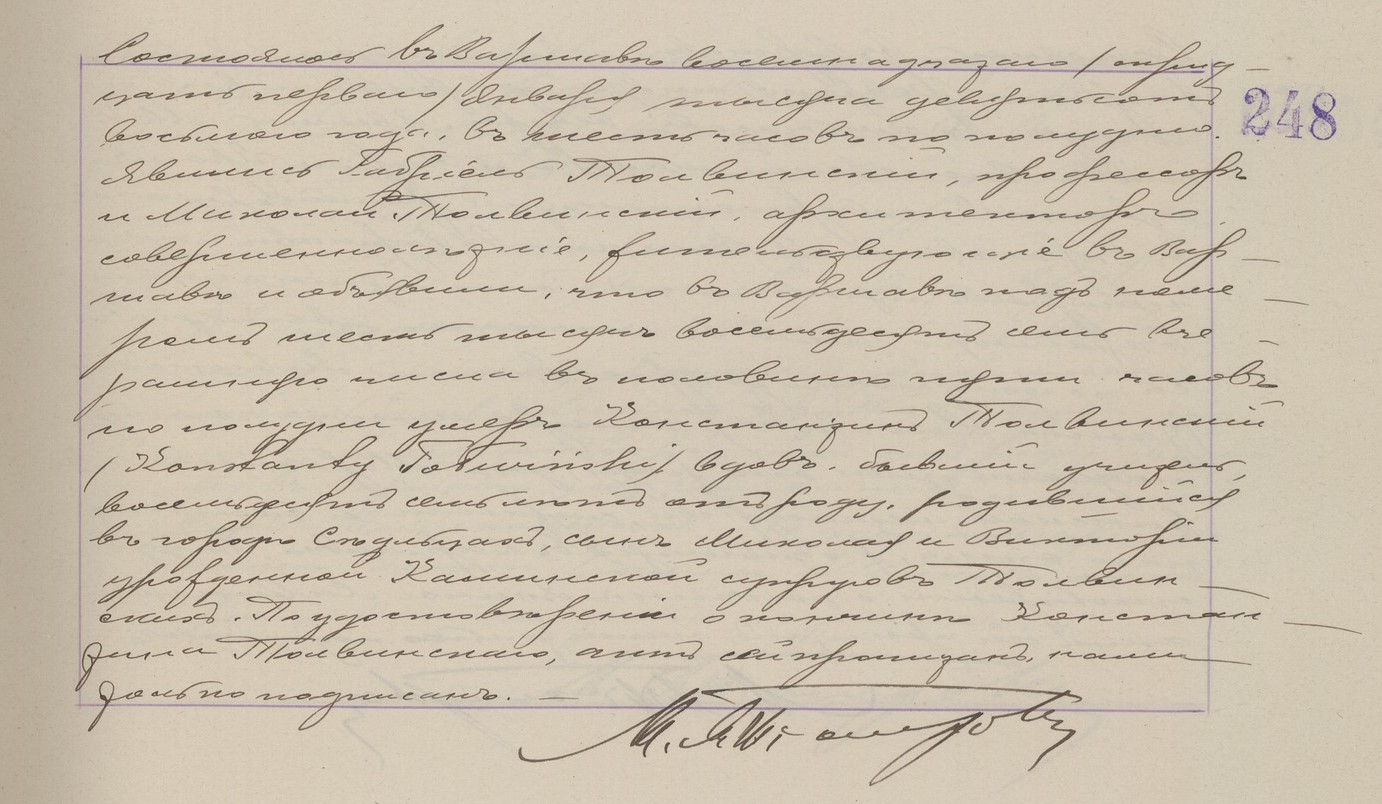 Состоялось въ Варшавѣ восемнадцатаго /трид-
цать перваго/ Января тысяча девятьсотъ
восьмого года, въ шесть часовъ по полудню.
248
Явились Габріель Толвинскій, профессоръ
и Миколай Толвинскій, архитекторъ,
совершеннолѣтніе, жительствующіе въ Вар-
шавѣ и объявили, что въ Варшавѣ подъ номе
ромъ шесть тысячъ восемьдесятъ семь вче
рашняго числа въ половинѣ пятаго часовъ
по полудни умеръ Константинъ Толвинскій
/Konstanty Tołwiński/ вдовъ, бывшій учитель,
восемьдесятъ семь лѣтъ отъ роду, родившійся
въ городѣ Сѣдльцахъ, сынъ Миколая и Викторіи
урожденной Каминской супруговъ Толвин-
скихъ. По удостовѣреніи о кончинѣ Констан-
тина Толвинскаго, актъ сей прочитанъ, нами
только подписанъ. —